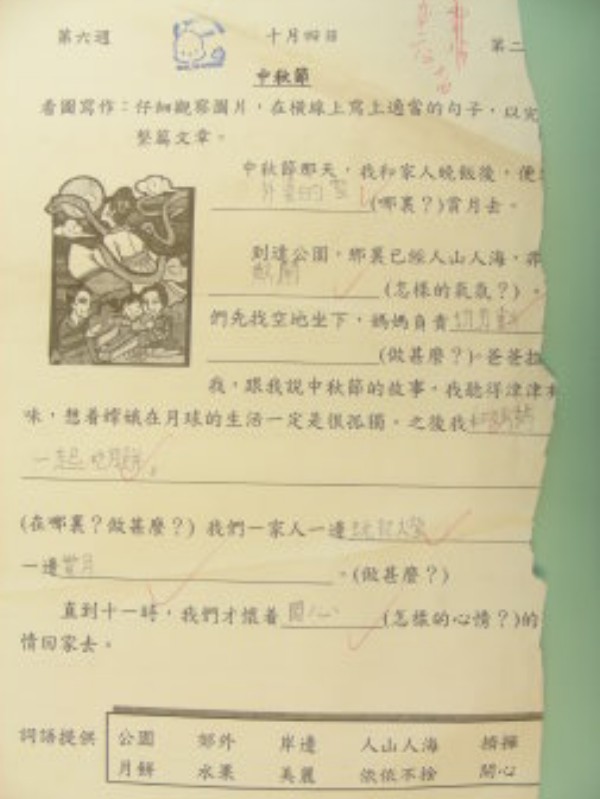 第六週 十月四日 第二
中秋節
看圖寫作：仔細觀察圖片，在橫線上寫上適當的句子，以完
整篇文章。
中秋節那天，我和家人晚飯後，便
(哪裏？)賞月去。
到達公園，那裏已經人山人海，非
(怎樣的氣氛？)。
們先找空地坐下，媽媽負責切月餅
(做甚麼？)，爸爸拉
我，跟我說中秋節的故事，我聽得津津有
味，想着嫦娥在月球的生活一定是很孤獨。之後我
一起吃月餅。
(在哪裏？做甚麼？) 我們一家人一邊
一邊賞月。(做甚麼？)
直到十一時，我們才懷着開心(怎樣的心情？)的
情回家去。
詞語提供 公園 郊外 岸邊 人山人海
月餅 水果 美麗 依依不捨 開心